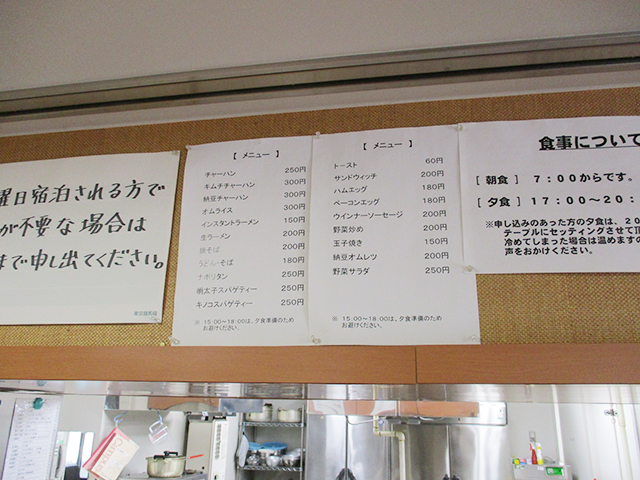 曜日宿泊される方で
が不要な場合は
まで申し出てください。
【 メニュー 】
チャーハン 250円
キムチチャーハン 300円
納豆チャーハン 300円
オムライス 300円
インスタントラーメン 150円
生ラーメン 200円
焼そば 200円
うどん・そば 180円
ナポリタン 250円
明太子スパゲティー 250円
キノコスパゲティー 250円
※ 15:00〜18:00は、夕食準備のため
お避けください。
【 メニュー 】
トースト 60円
サンドウィッチ 200円
ハムエッグ 180円
ベーコンエッグ 180円
ウインナーソーセージ 200円
野菜炒め 200円
玉子焼き 150円
納豆オムレツ 200円
野菜サラダ 250円
※ 15:00〜18:00は、夕食準備のため
お避けください。
食事について
[ 朝食 ] 7:00からです。
[ 夕食 ] 17:00〜20:
※申し込みのあった方の夕食は、20
テーブルにセッティングさせて頂
冷めてしまった場合は温めますの
声をおかけください。